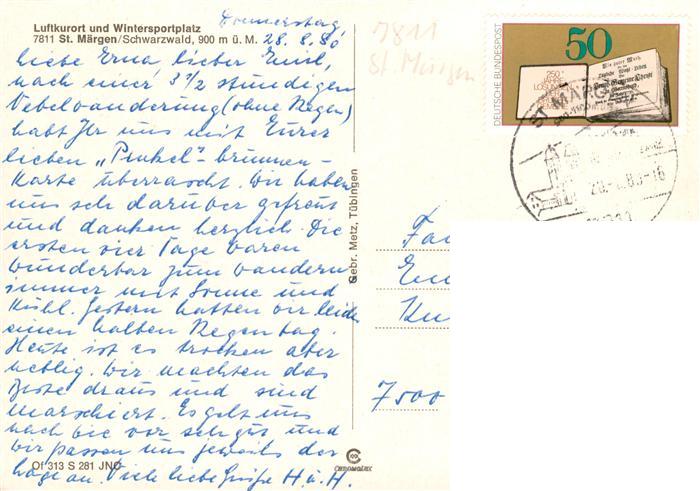 Donnerstag,
Luftkurort und Wintersportplatz
7811 St. Märgen/Schwarzwald, 900 m ü. M.
28.8.80
liebe Erna, lieber Emil,
nach einer 3 1/2 stündigen
Nebelwanderung (ohne Regen)
habt Ihr uns mit Eurer
lieben „Pinkel"-brunnen-
Karte überrascht. Wir haben
uns sehr darüber gefreut
und danken herzlich. Die
ersten vier Tage waren
wunderbar zum wandern
immer mit Sonne und
Kühl. Gestern hatten wir leider
einen halben Regentag.
Heute ist es trocken aber
neblig. Wir machten das
Beste draus und sind
marschiert. Es geht uns
nach wie vor sehr gut und
wir passen uns jeweils der
Lage an. Viele liebe Grüße H u. H.
Of 313 S 281 JNC
Gebr. Metz, Tübingen
CHROMOLUX
7811
St. Märgen
DEUTSCHE BUNDESPOST
50
250
LOSUN
ST. MÄRG
Fa
Em
Ku
7500